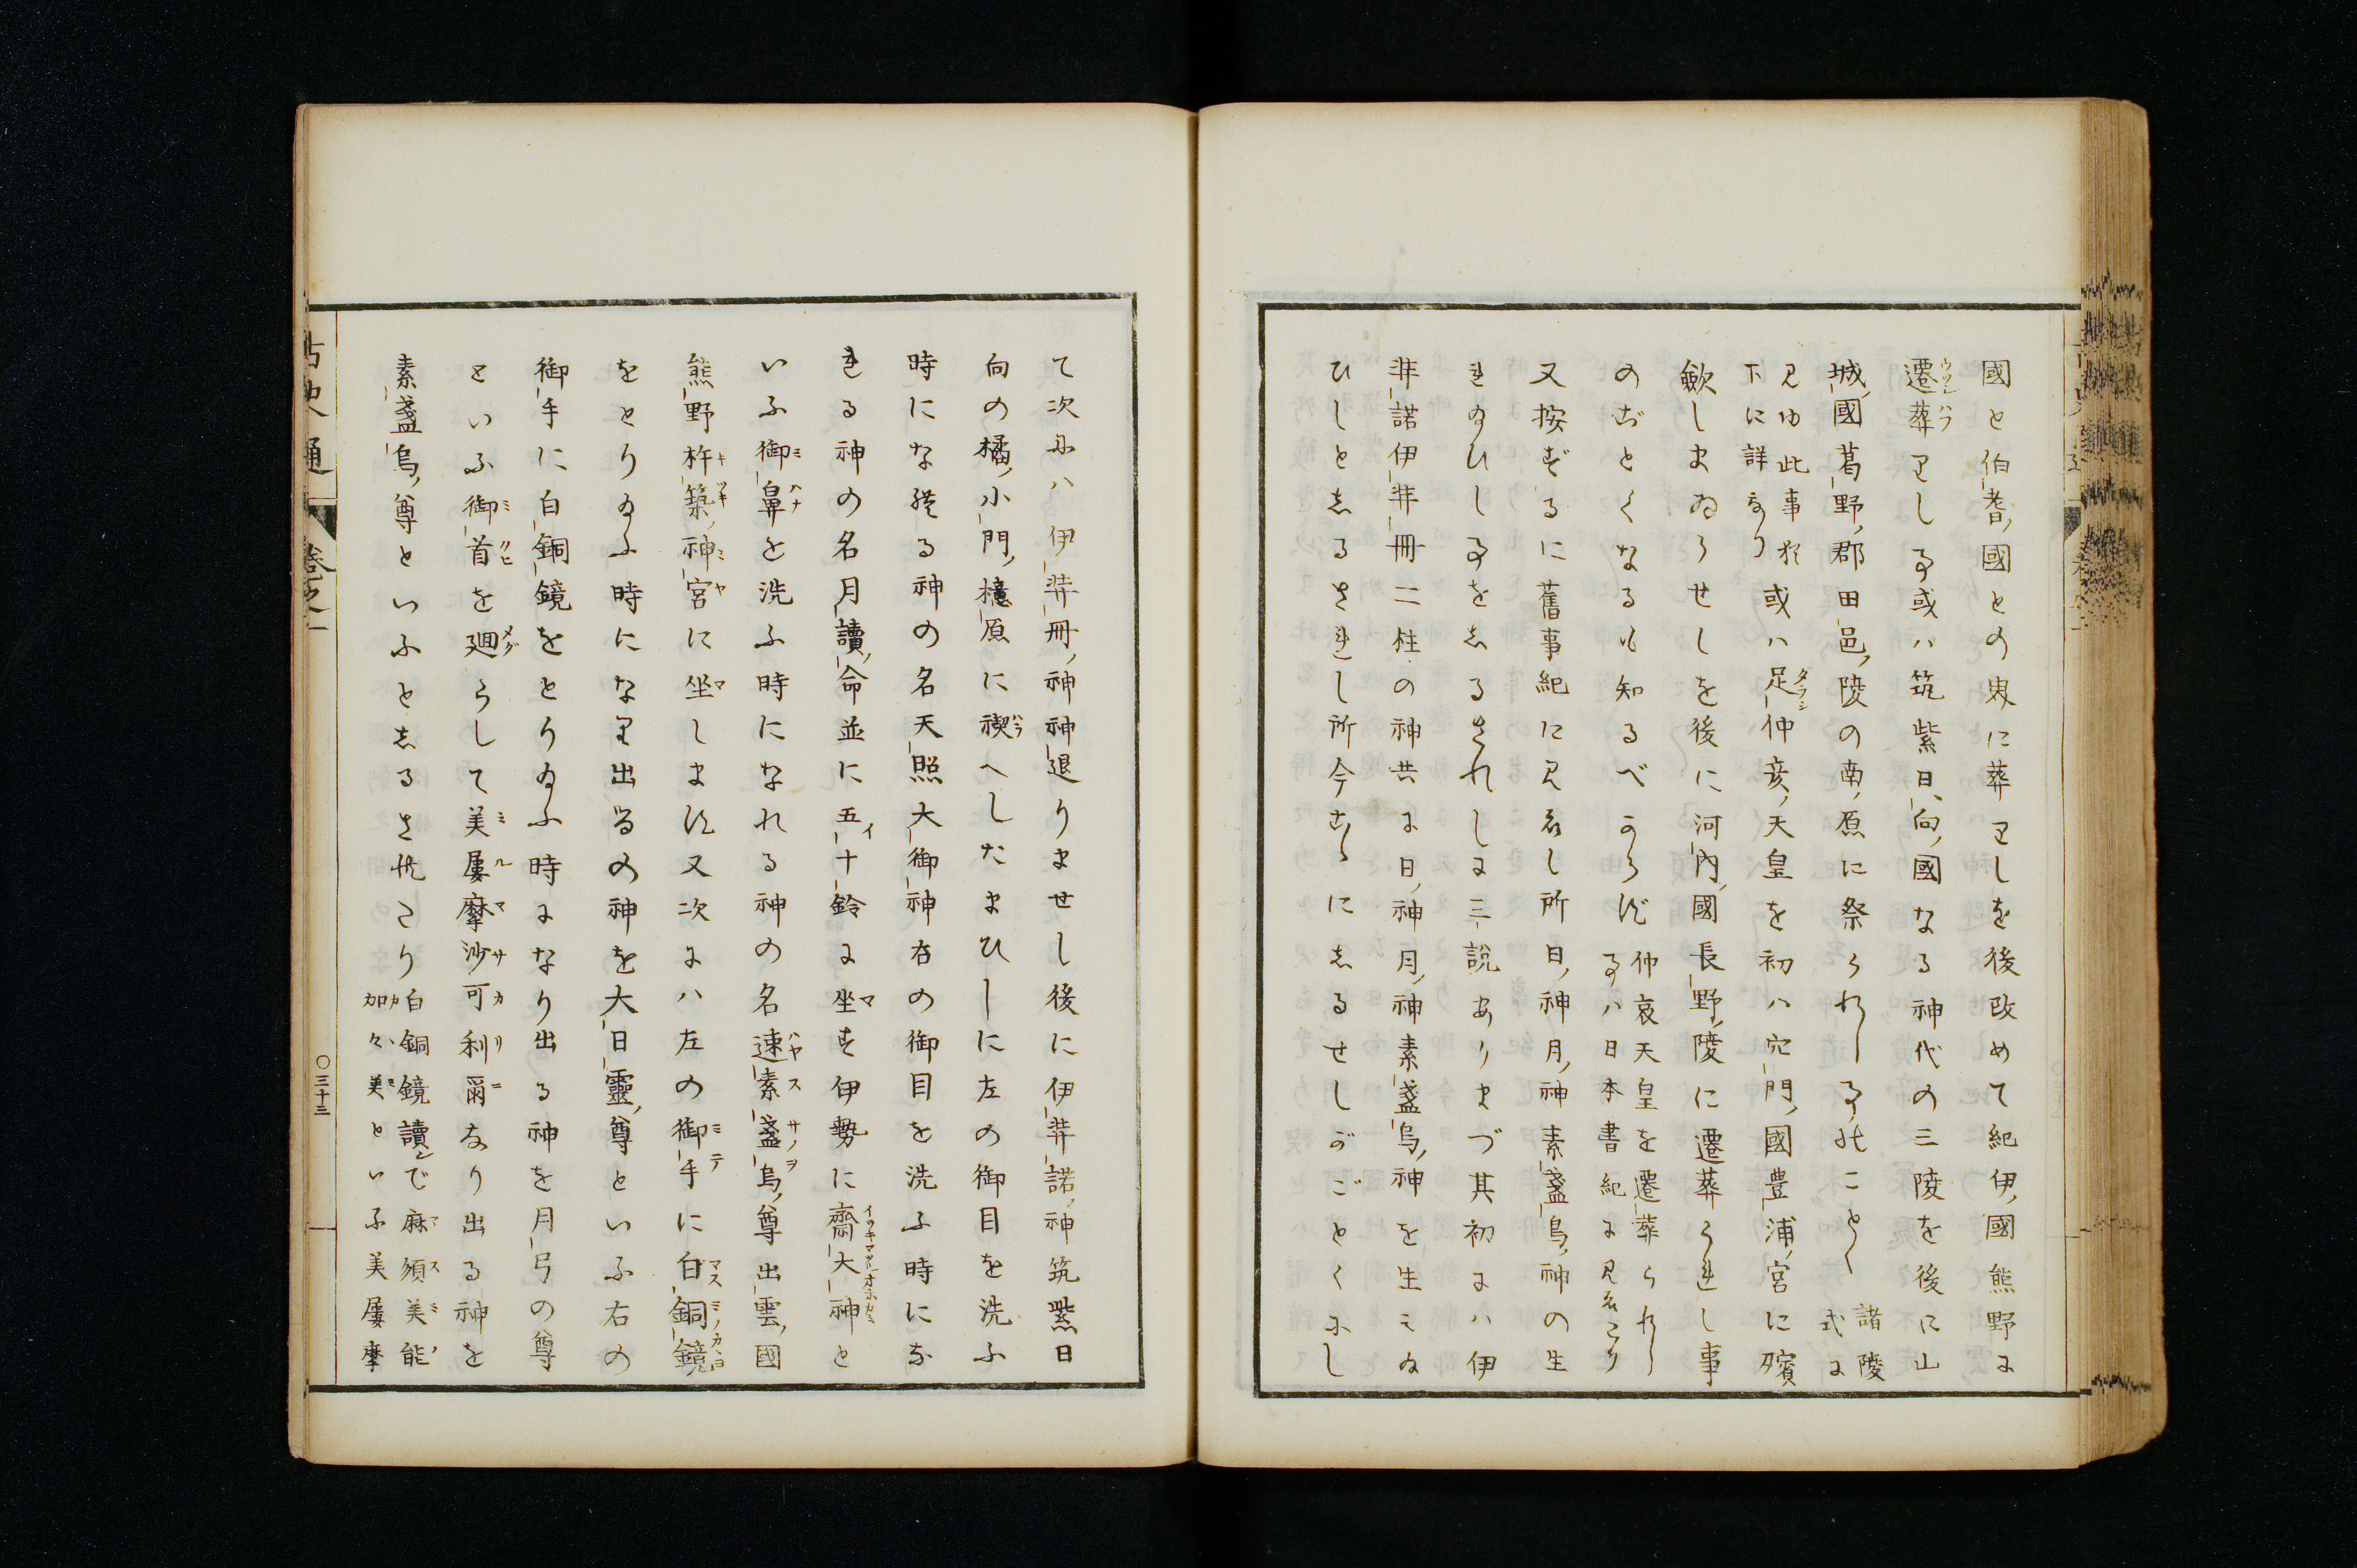 國と伯耆國との堺に葬りしを後改めて紀伊國熊野に
遷葬りし事或ハ筑紫日向國なる神代の三陵を後に山
城國葛野郡田邑陵の南原に祭られし事のごとく諸陵式に
見ゆ此事猶下に詳なり或ハ足仲彦天皇を初ハ穴門國豊浦宮に殯
歛しまゐらせしを後に河内國長野陵に遷葬られし事
のごとくなるも知るべからず仲哀天皇を遷葬られし事ハ日本書紀に見えたり
又按ずるに舊事紀に見えし所日神月神素盞烏神の生
れ給ひし事をしるされしに三説ありまづ其初にハ伊
弉諾伊弉冊二柱の神共に日神月神素盞烏神を生ミ給
ひしとしるされし所今こゝにしるせしがごとくにし
て次にハ伊弉冊神神退りませし後に伊弉諾神筑紫日
向の橘小門檍原に禊へしたまひしに左の御目を洗ふ
時になれる神の名天照大御神右の御目を洗ふ時にな
れる神の名月讀命並に五十鈴に坐す伊勢に齋大神と
いふ御鼻を洗ふ時になれる神の名速素盞烏尊出雲國
熊野杵築神宮に坐します又次にハ左の御手に白銅鏡
をとり給ふ時になり出る の神を大日靈尊といふ右の
御手に白銅鏡をとり給ふ時になり出る神を月弓の尊
といふ御首を廻らして美屢摩沙可利爾なり出る神を
素盞烏尊といふとしるされたり白銅鏡讀で麻須美能加々美といふ美屢摩
古史通
卷之一
〇三十三